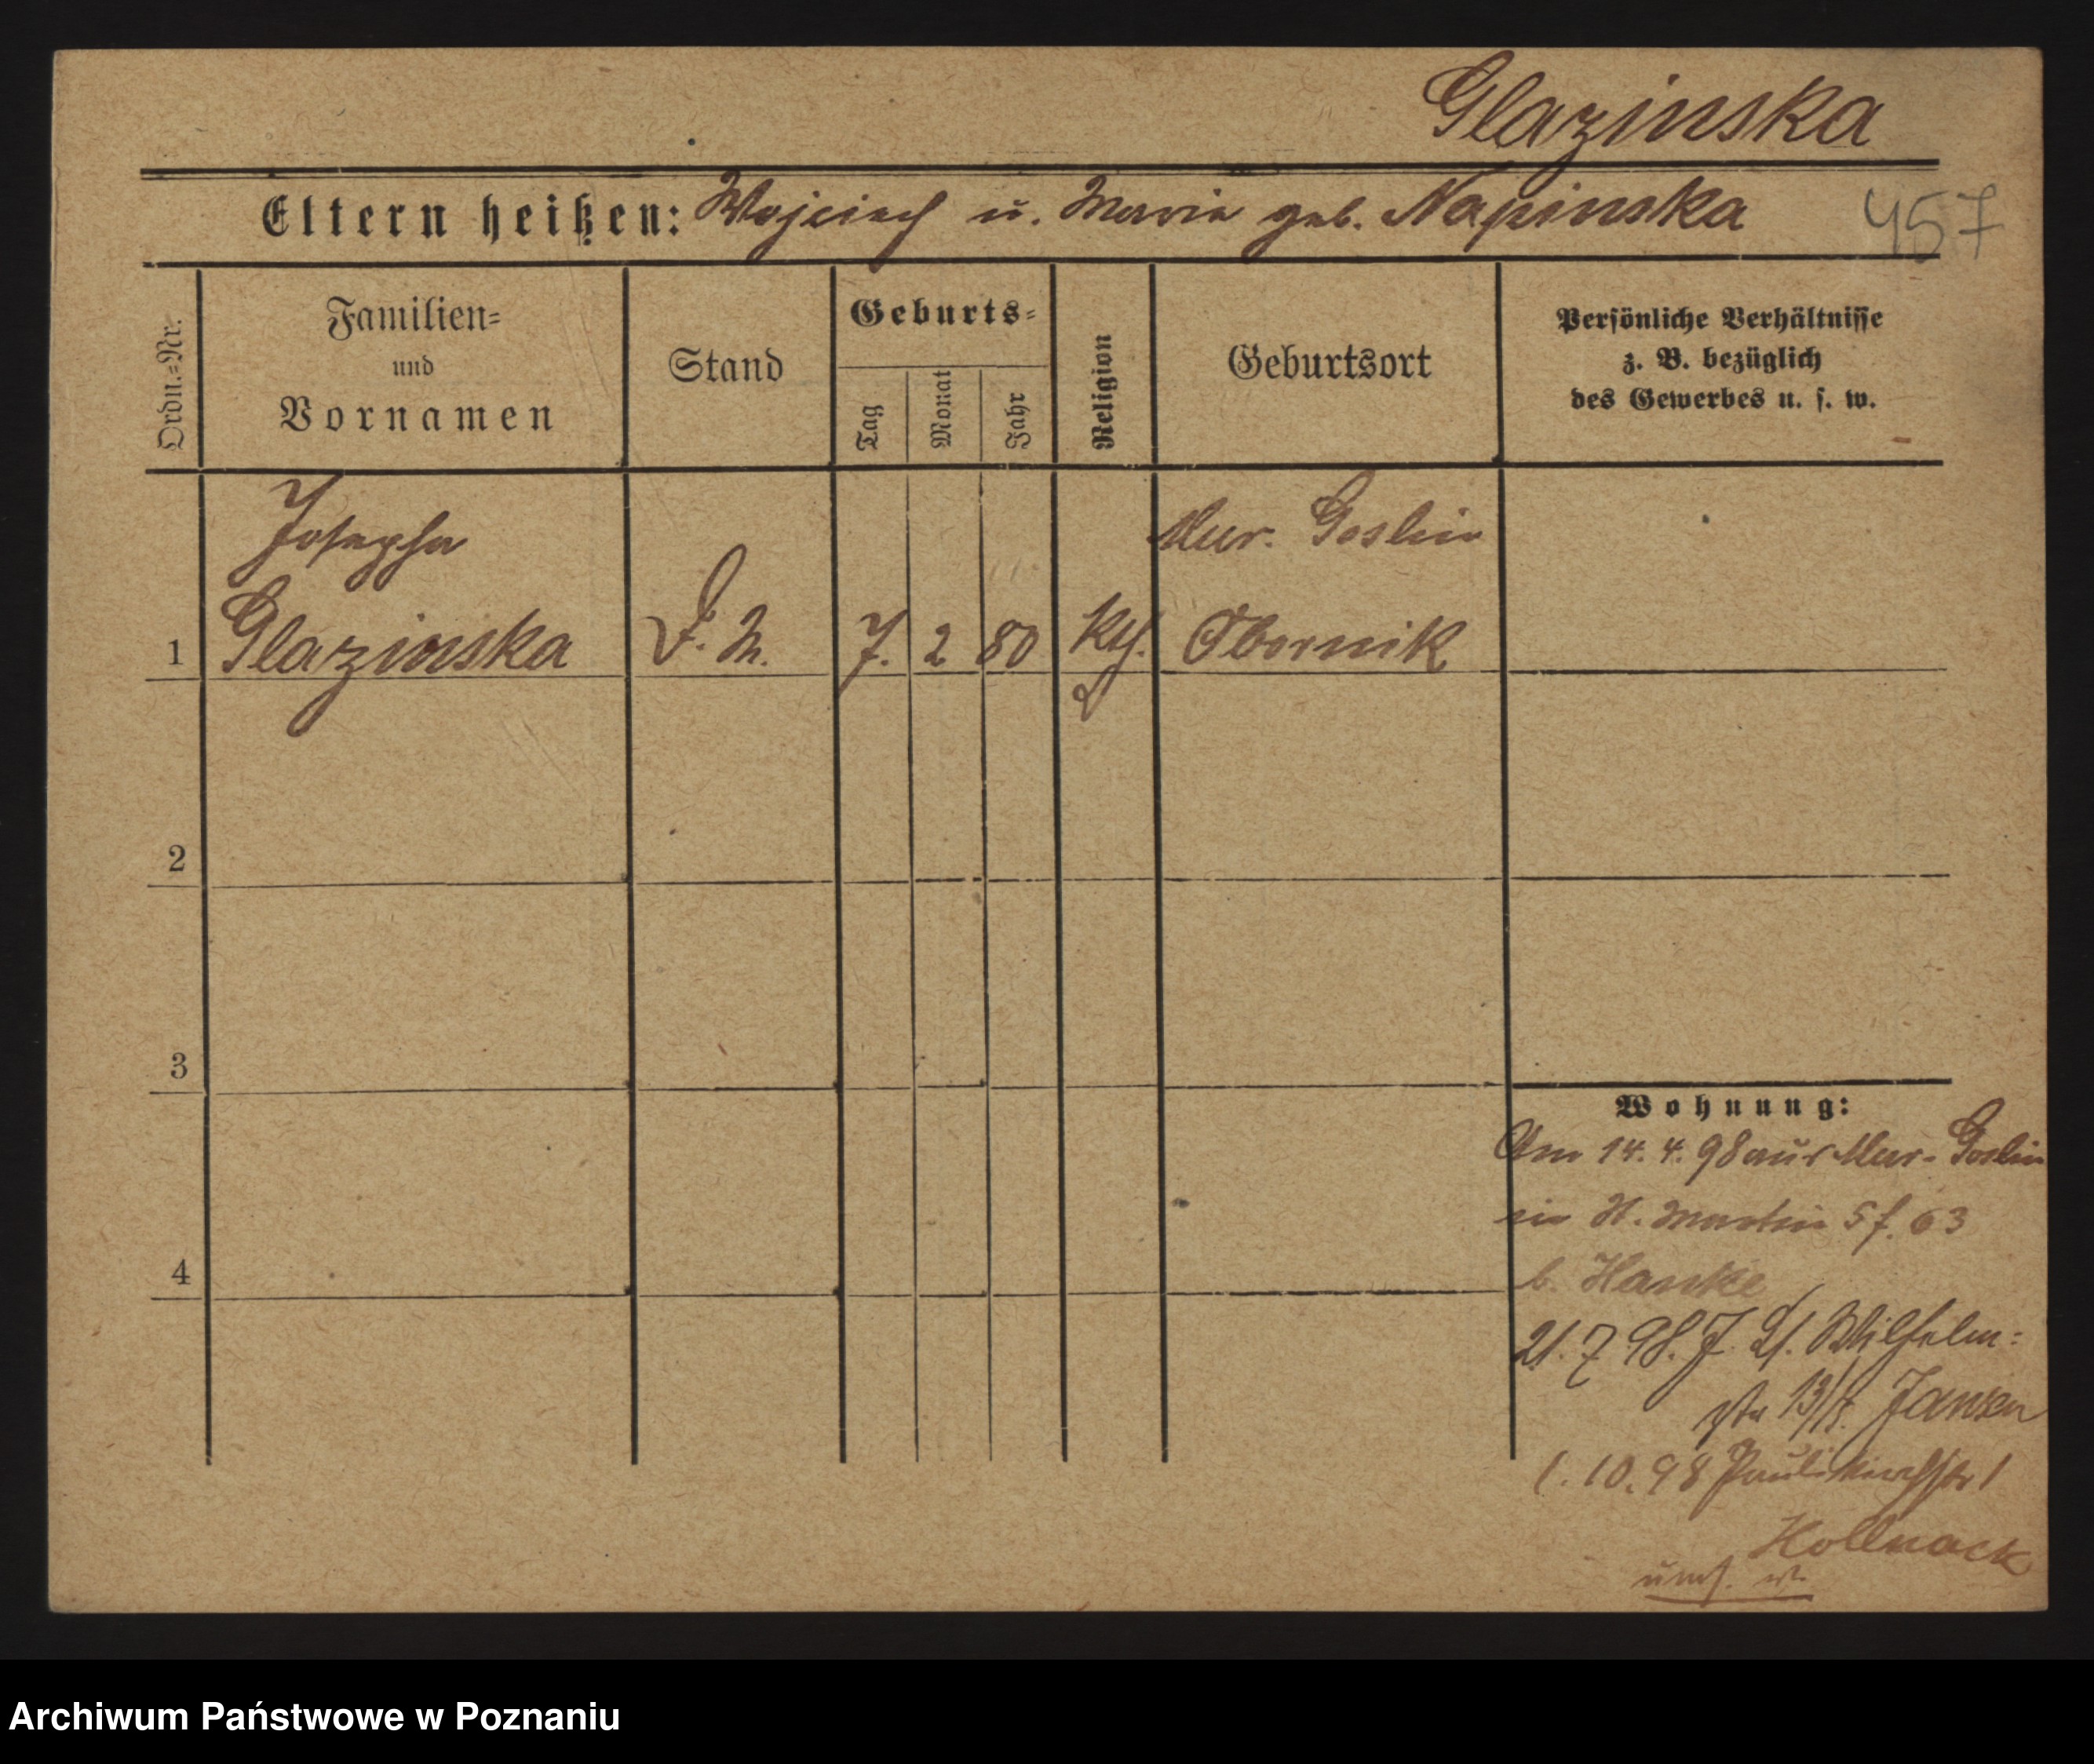 Glazinska
Eltern heißen: Wojciech u. Marie geb. Napinska
457
Ordn.=Nr.
Familien=
und
Vornamen
Stand
Geburts=
Tag
Monat
Jahr
Religion
Geburtsort
Persönliche Verhältnisse
z. B. bezüglich
des Gewerbes u. s. w.
Josepha
Mur. Goslin
1 Glazinska D. M. 7. 2 80 kth. Obornik
2
3
4
Wohnung:
Am 14. 4. 98 aus Mur. Goslin
in St. Martin 63
b. Hanke
21. 7 98. Wilhelm=
str 13/ Jansen
1. 10. 98 Paulikirchstr 1
Hollnack